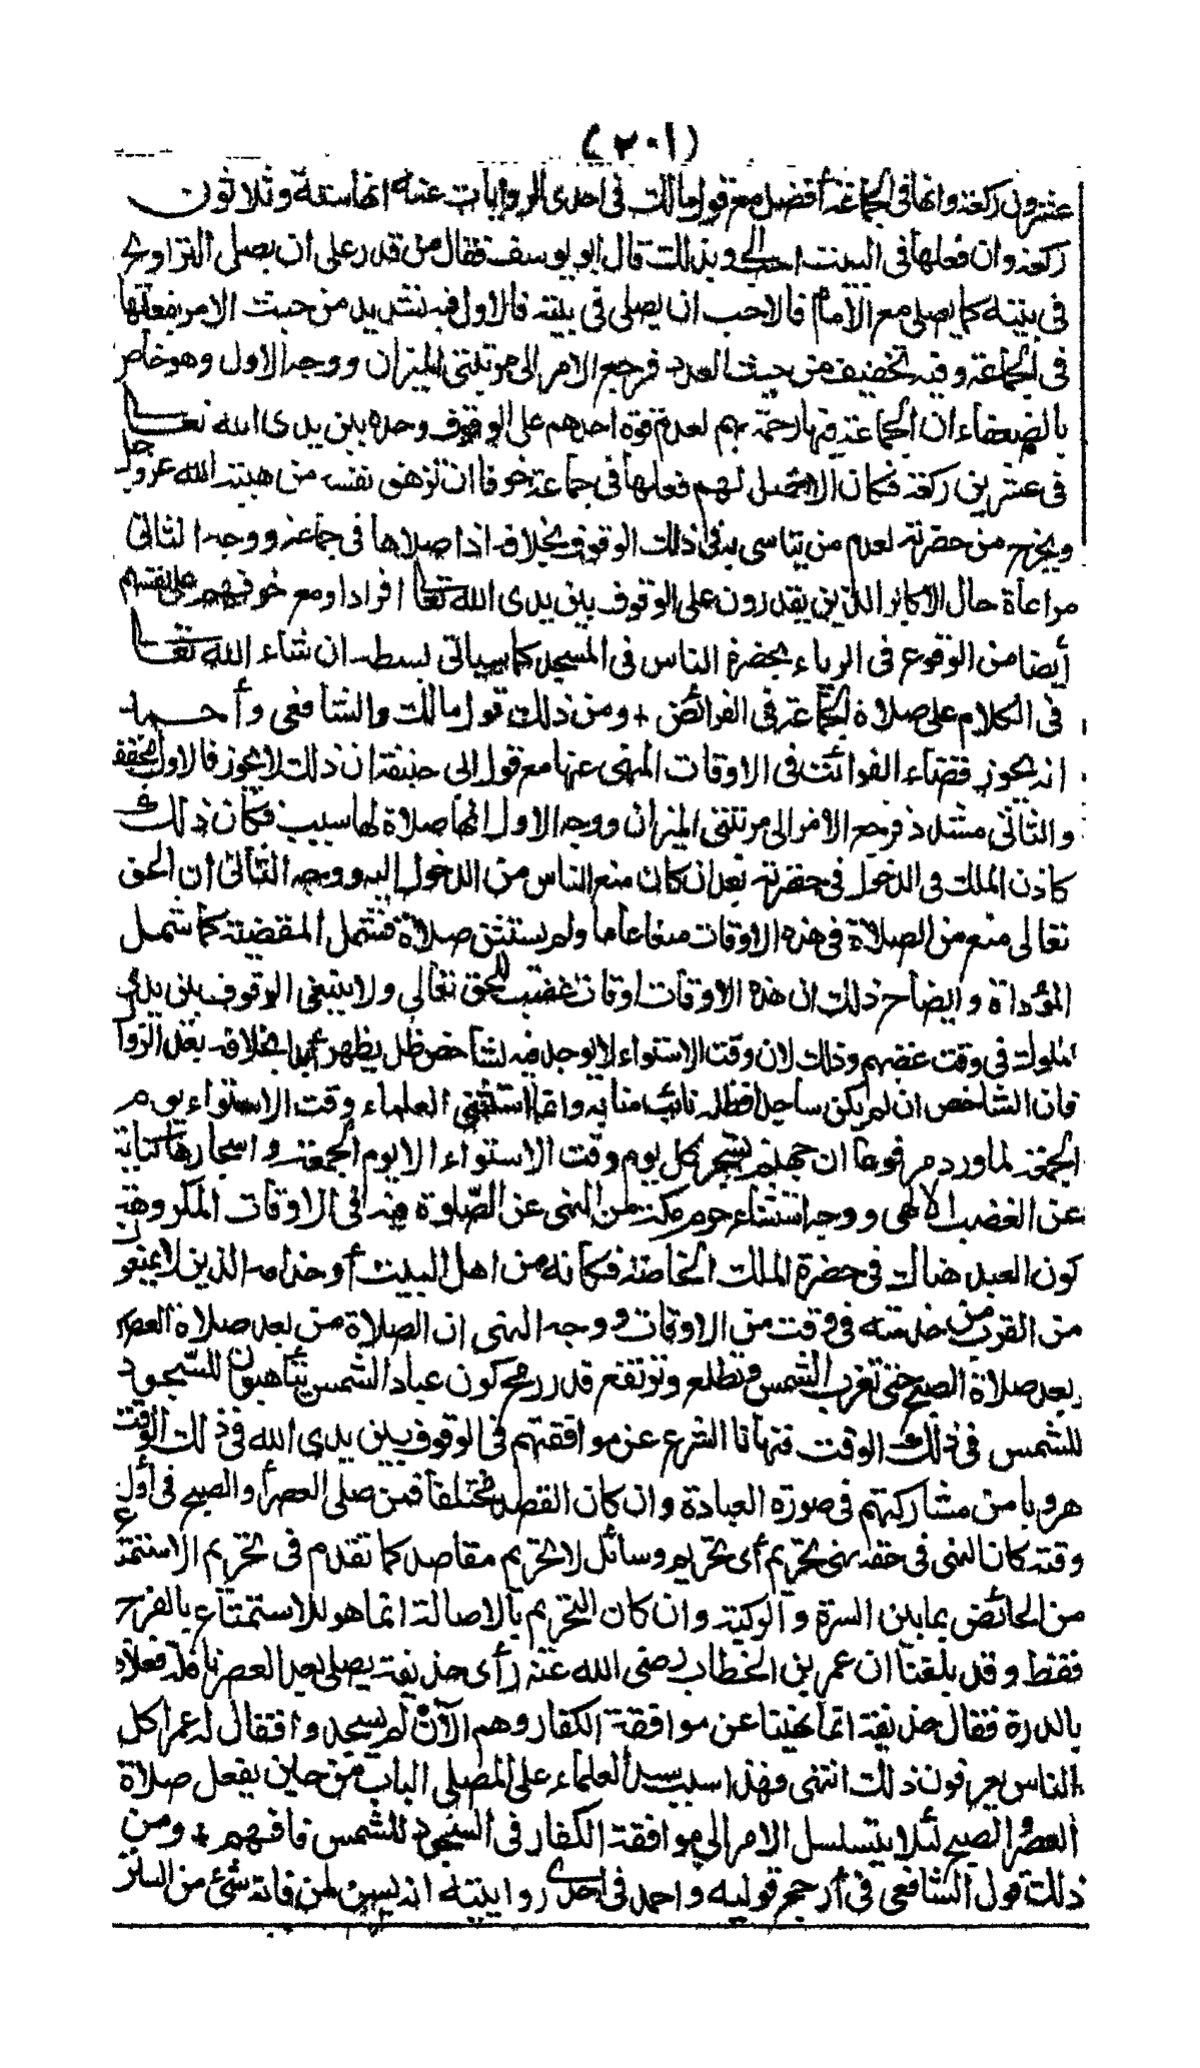 (٢٠١)
عشرون ركعة وانها في الجماعة أفضل مع قول مالك في احدى الروايات عنه انها ستة وثلاثون
ركعة وان فعلها في البيت احب الي وبذلك قال ابو يوسف فقال من قدر على ان يصلى التراويح
في بيته كما يصلى مع الأمام فالاحب ان يصلى في بيته فالاول فيه تشديد من حيث الامر بفعلها
في الجماعة وفيه تخفيف من حيث العدد فرجع الامر الى مرتبتي الميزان ووجه الاول وهو خاص
بالضعفاء ان الجماعة فيها رحمة بهم لعدم قوة احدهم على الوقوف وحده بين يدى الله تعالى
في عشرين ركعة فكان الافضل لهم فعلها في جماعة خوفا ان تزهق نفسه من هيبة الله عز وجل
ويخرج من حضرته لعدم من يتاسى به في ذلك الوقوف بخلاف اذا صلاها في جماعة ووجه الثاني
مراعاة حال الاكابر الذين يقدرون على الوقوف بين يدى الله تعا افرادا ومع خوفهم على نفسهم
أيضا من الوقوع في الرياء بحضرة الناس في المسجد كما سيأتي بسطه ان شاء الله تعا
في الكلام على صلاة الجماعة في الفرائض + ومن ذلك قول مالك والشافعي وأحمد
انه يجوز قضاء الفوائت في الاوقات المنهى عنها مع قول ابى حنيفة ان ذلك لا يجوز فالاول مخفف
والثاني مشدد فرجع الامر الى مرتبتي الميزان ووجه الاول انها صلاة لها سبب فكان ذلك
كاذن الملك في الدخول في حضرته بعد ان كان منع الناس من الدخول اليه ووجه الثاني ان الحق
تعالى منع من الصلاة في هذه الاوقات منعا عاما ولم يستثن صلاة فشمل المقضية كما شمل
المؤداة وايضاح ذلك ان هذه الاوقات اوقات غضب للحق تعالى ولا ينبغي الوقوف بين يدي
الملوك في وقت غضبهم وذلك لان وقت الاستواء لا يوجد فيه لشاخص ظل يظهر أبدا بخلافه بعد الزوا
فان الشاخص ان لم يكن ساجدا فظله نائب منابه وانما استثنى العلماء وقت الاستواء يوم
الجمعة لما ورد مرفوعا ان جهنم تسجر كل يوم وقت الاستواء الا يوم الجمعة واسجارها كناية
عن الغضب الالهى ووجه استثناء حرم مكة من النهى عن الصلوة فيه في الاوقات المكروهة
كون العبد هناك في حضرة الملك الخاصة فكانه من اهل البيت أو خدامه الذين لا يمنعون
من القرب من خدمته في وقت من الاوقات ووجه النهى ان الصلاة من بعد صلاة العصر
بعد صلاة الصبح حتى تغرب الشمس وتطلع وترتفع قدر رمح كون عباد الشمس يتأهبون للسجود
للشمس في ذلك الوقت فنهانا الشرع عن موافقتهم في الوقوف بين يدى الله في ذلك الوقت
هروبا من مشاركتهم في صورة العبادة وان كان القصد مختلفا فمن صلى العصر أو الصبح في أول
وقته كان النهى في حقه نهى تحريم أي تحريم وسائل لا تحريم مقاصد كما تقدم في تحريم الاستمتاع
من الحائض بما بين السرة والركبة وان كان التحريم بالاصالة انما هو للاستمتاع بالفرج
فقط وقد بلغنا ان عمر بن الخطاب رضى الله عنه رأى حذيفة يصلى بعد العصر نافلة فعلاه
بالدرة فقال حذيفة انما نهينا عن موافقة الكفار وهم الآن لم يسجدوا فقال له عمر اكل
الناس يعرفون ذلك انتهى فهذا سبب سد العلماء على المصلى الباب من حين يفعل صلاة
العصر والصبح لئلا يتسلسل الامر الى موافقة الكفار في السجود للشمس فافهم + ومن
ذلك قول الشافعي في أرجح قوليه واحمد في احدى روايتيه انه يسن لمن فاته شئ من السنن